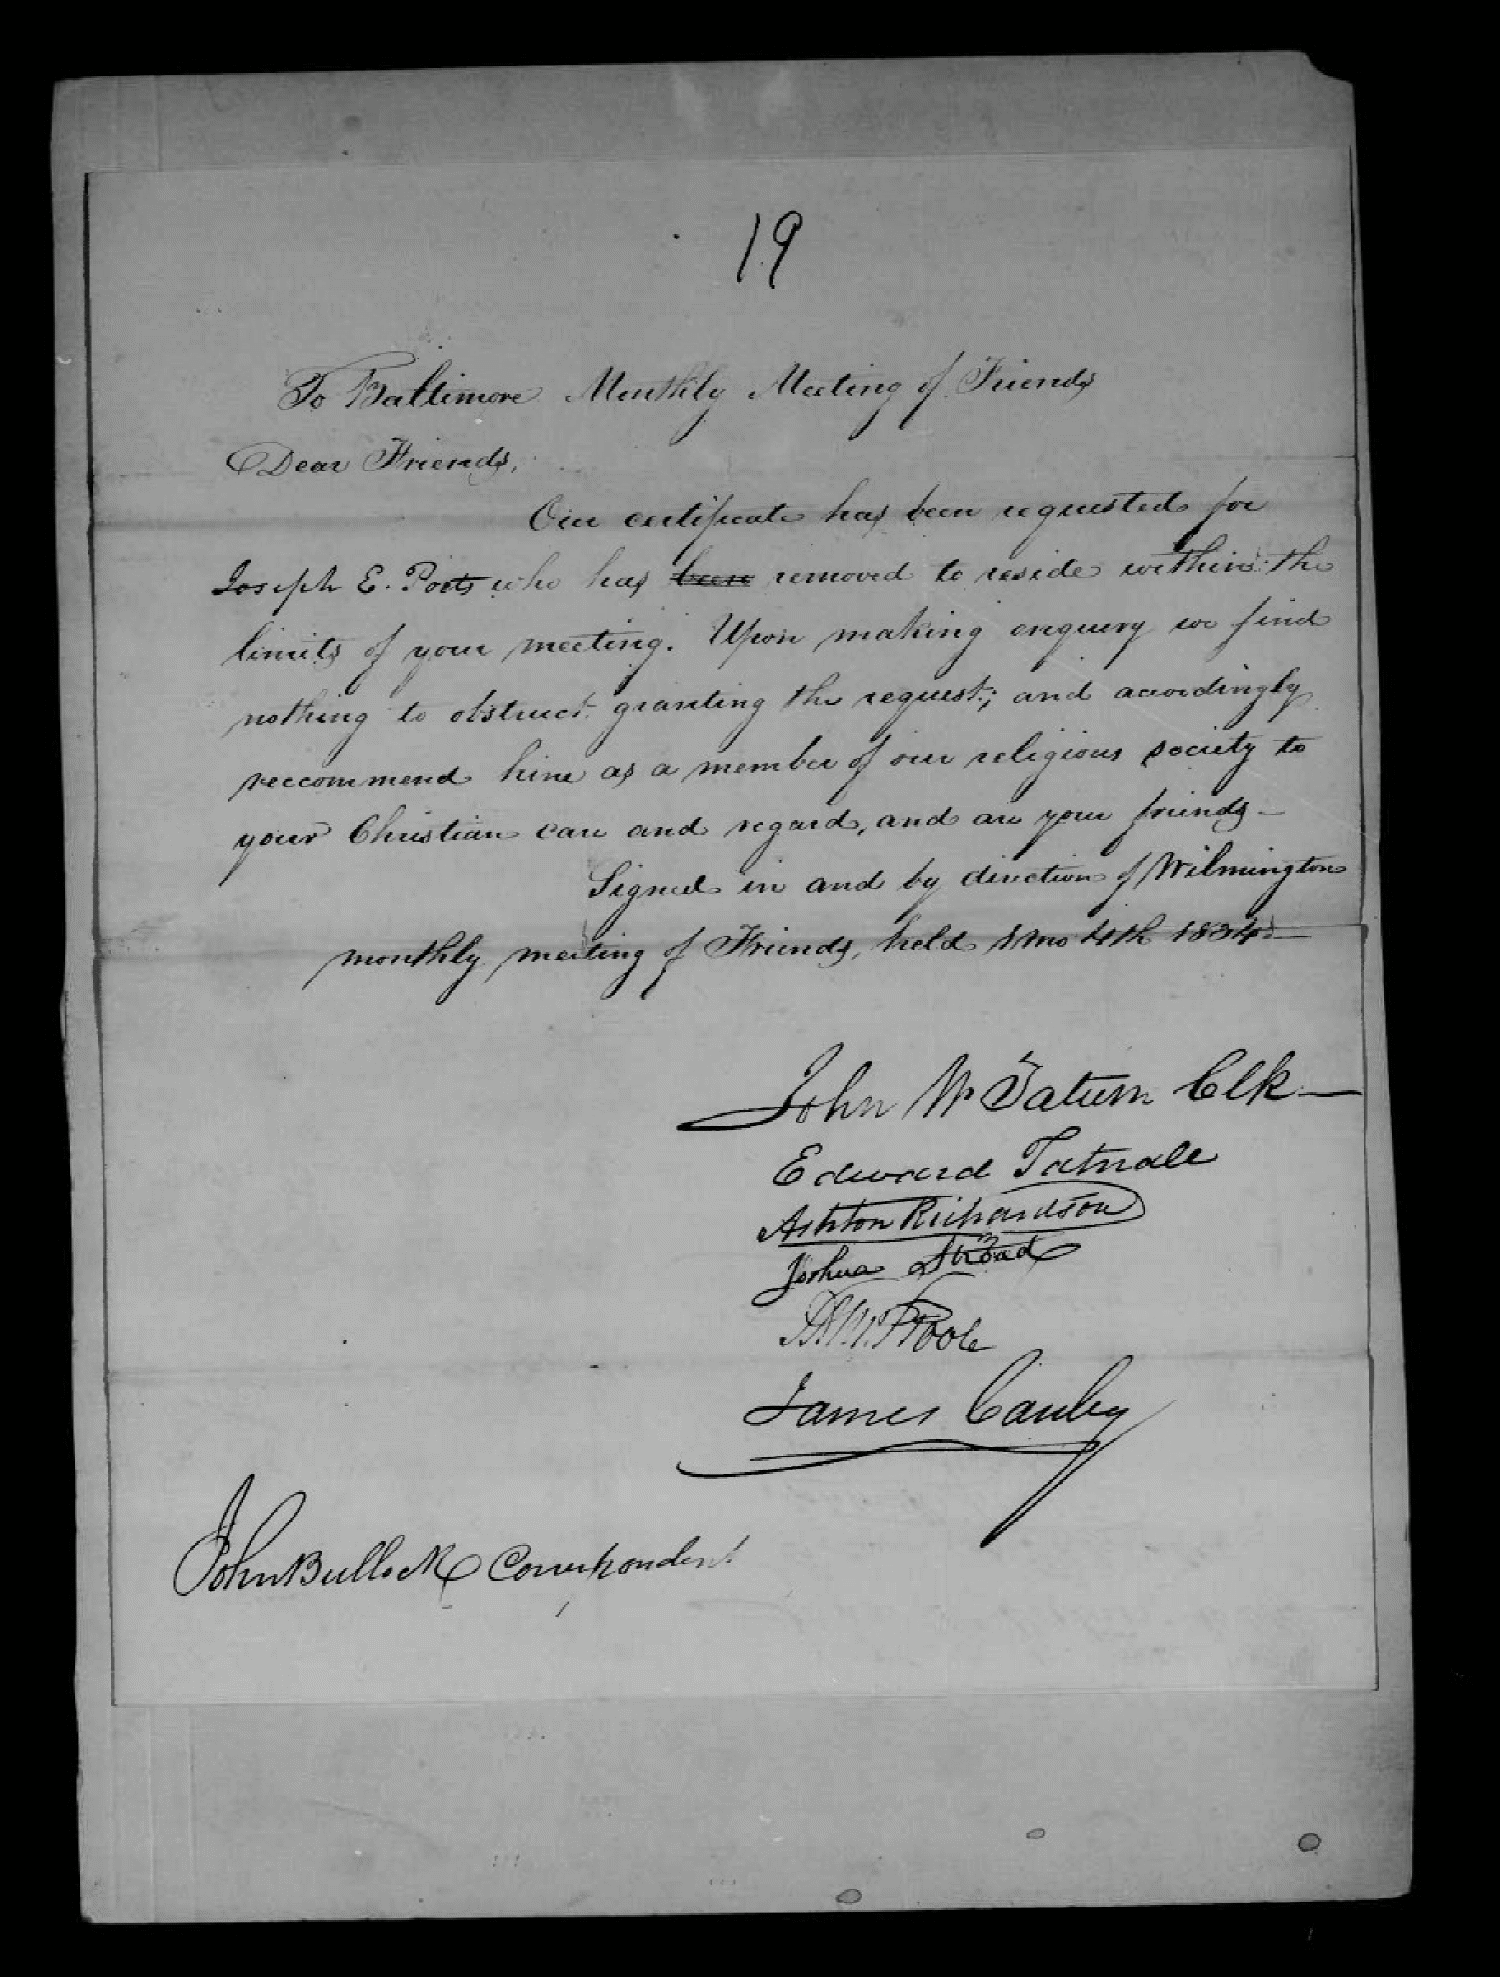 19
To Baltimore Monthly Meeting of Friends
Dear Friends,
Our certificate has been requested for
Joseph E. Poots who has been removed to reside within the
limits of your meeting. Upon making enquiry we find
nothing to obstruct granting the request; and accordingly
reccommend him as a member of our religious society to
your Christian care and regard, and are your friends—
Signed in and by direction of Wilmington
monthly meeting of Friends, held mo 4th 1834—
John W Tatum Clk—
Edward Tatnall
Ashton Richardson
Joshua
Poole
James Canby
John Bullock Correspondent